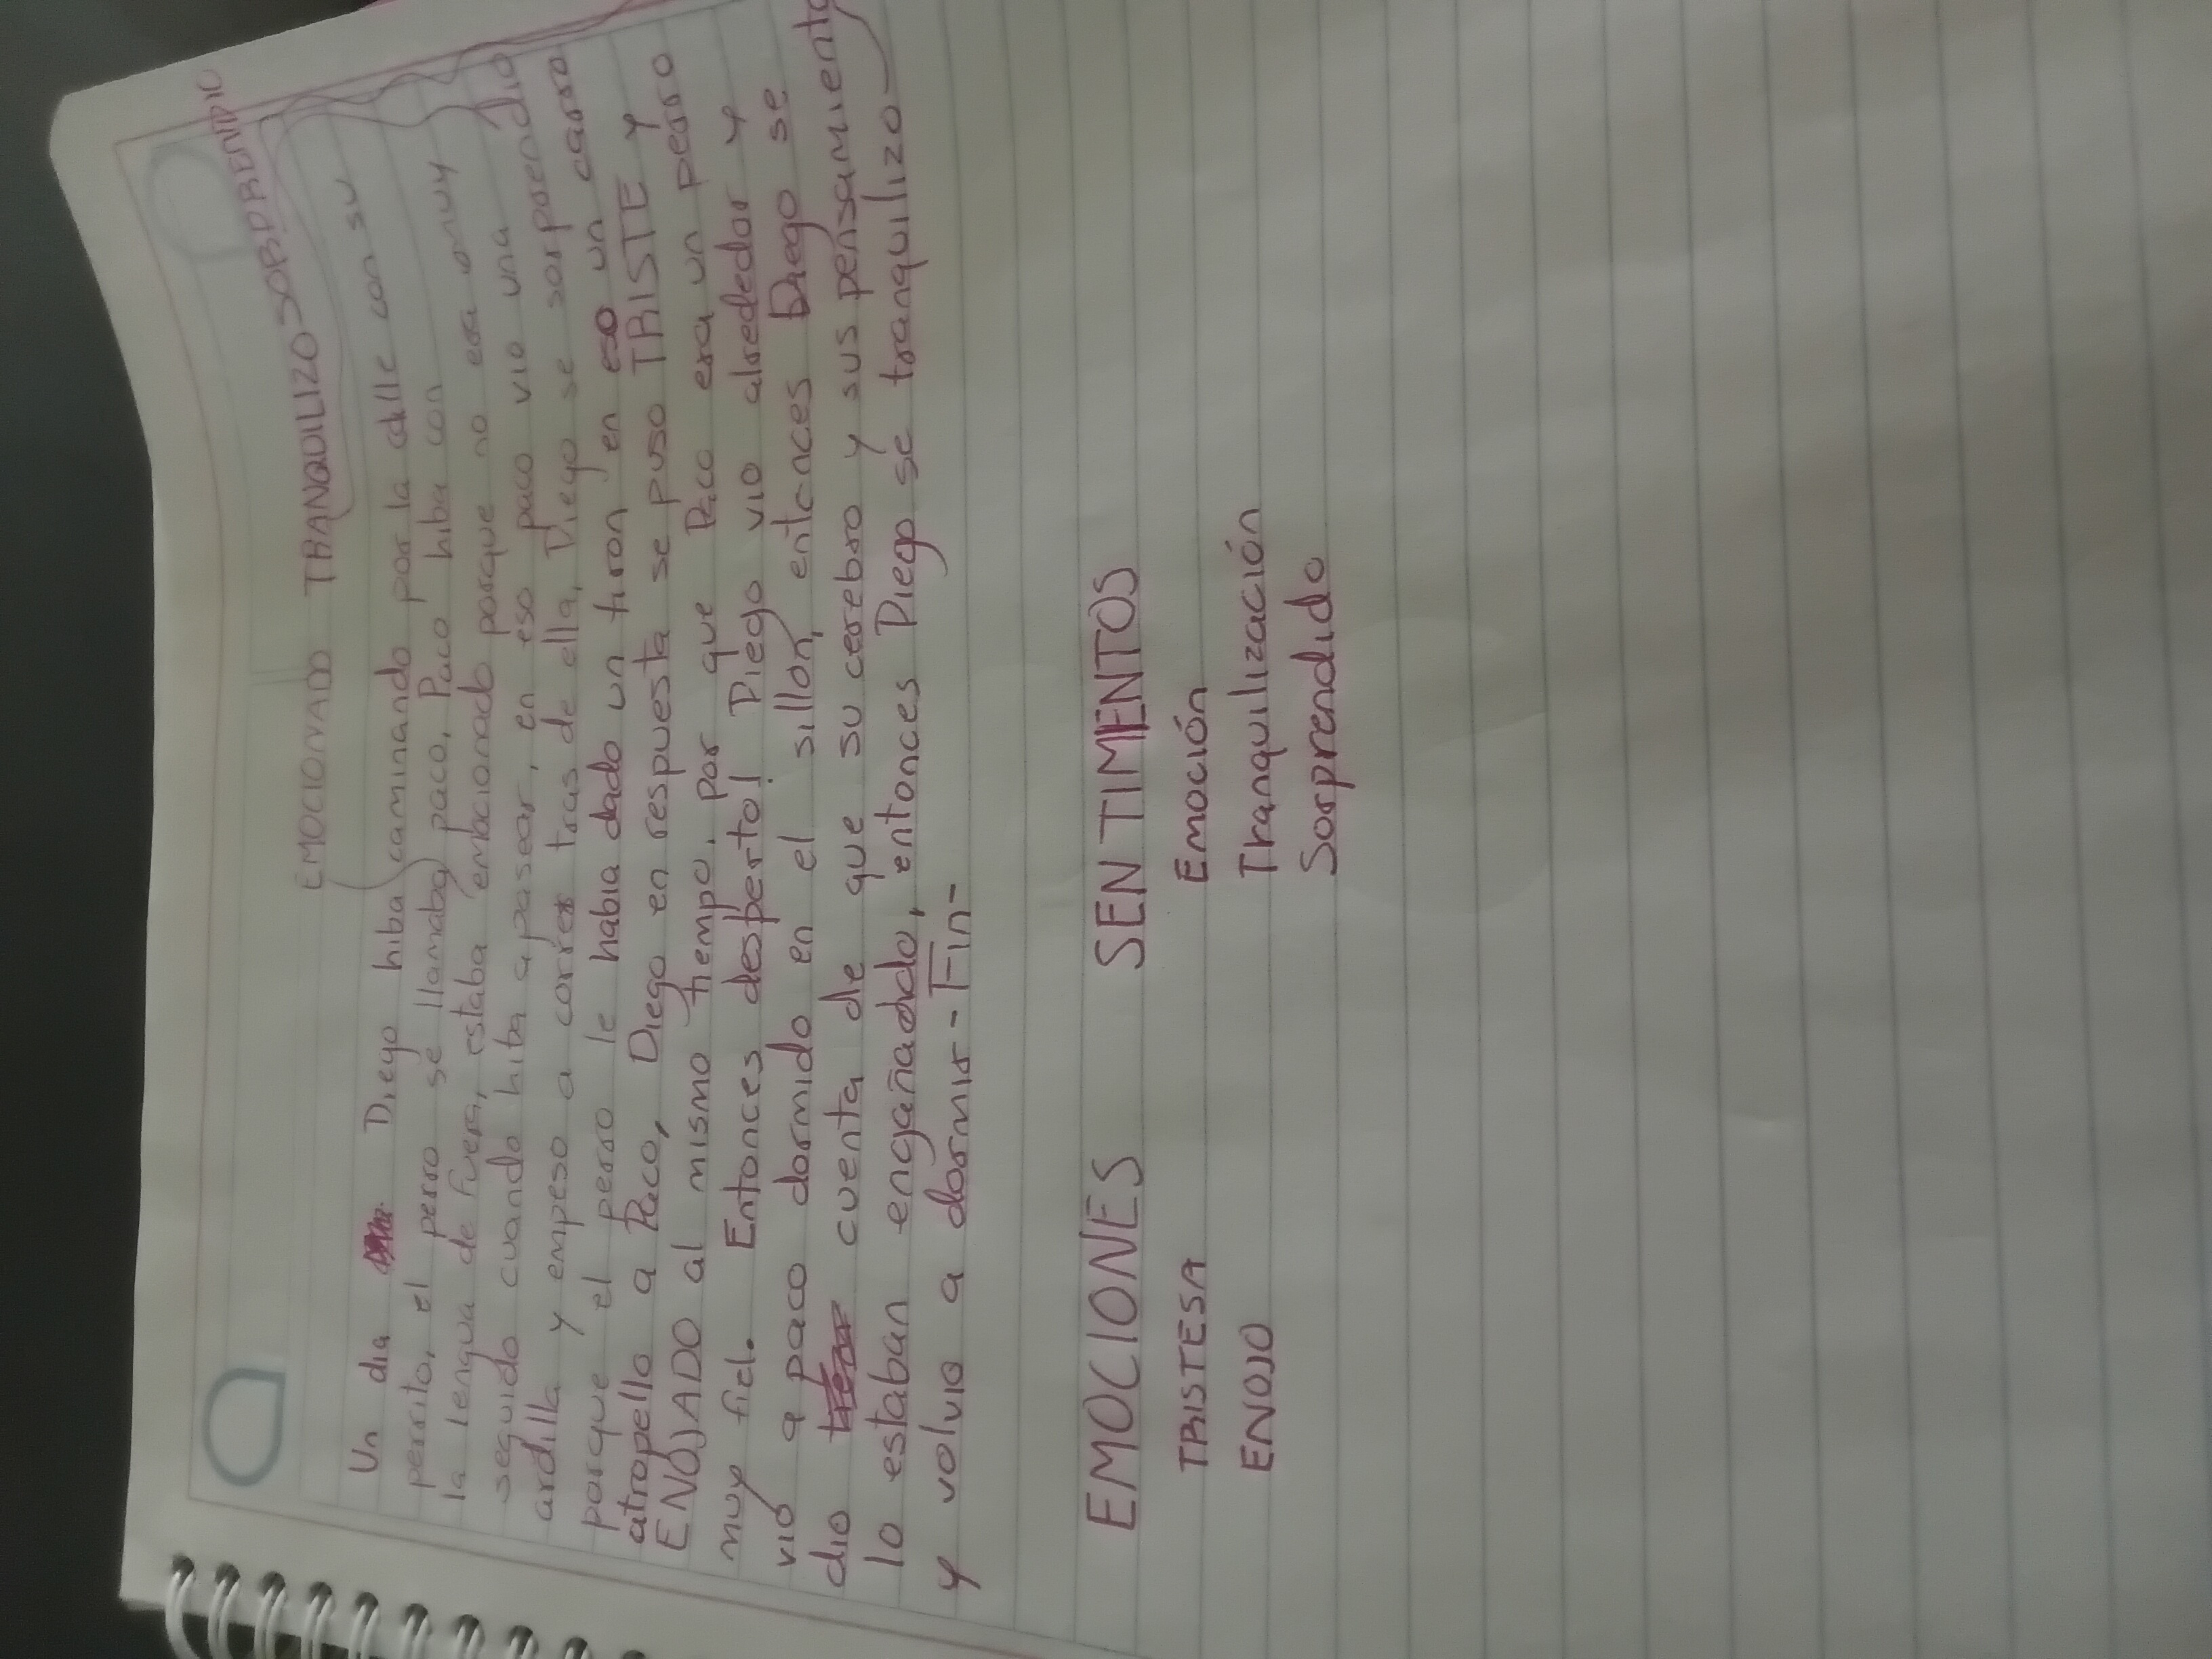 EMOCIONADO TRANQUILIZO SORPRENDIO
Un dia Diego hiba caminando por la calle con su
perrito, el perro se llamaba paco, Paco hiba con
la lengua de fuera, estaba emocionado porque no era muy
seguido cuando hiba a pasear, en eso paco vio una
ardilla y empeso a correr tras de ella, Diego se sorprendio
porque el perro le habia dado un tiron en eso un carro
atropello a Paco, Diego en respuesta se puso TRISTE Y
ENOJADO al mismo tiempo, por que Paco era un perro
muy fiel. Entonces desperto! Diego vio alrededor y
vio a paco dormido en el sillon, entonces Diego se
dio cuenta de que su cerebro y sus pensamiento
lo estaban engañadado, entonces Diego se tranquilizo
y volvio a dormir - Fin-
EMOCIONES SENTIMIENTOS
TRISTESA Emoción
ENOJO Tranquilización
Sorprendido